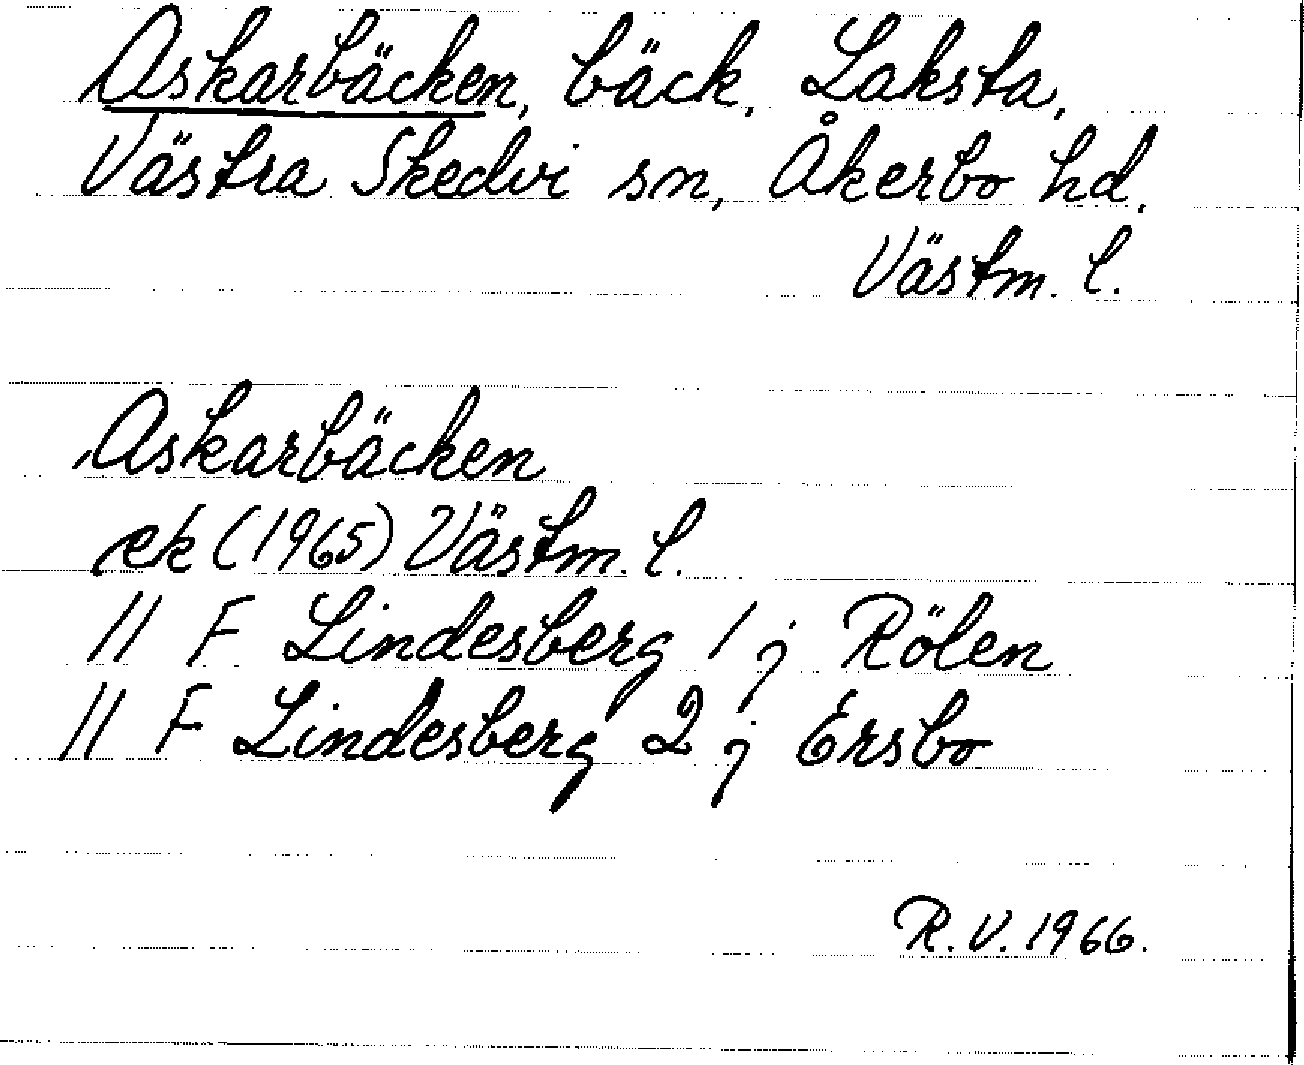 Askarbäcken, bäck, Laksta,
Västra Skedvi sn, Åkerbo hd.
Västm. l.
Askarbäcken
ek (1965) Västm. l.
11 F Lindesberg 1 j Rölen
11 F Lindesberg 2 j Ersbo
R. V. 1966.